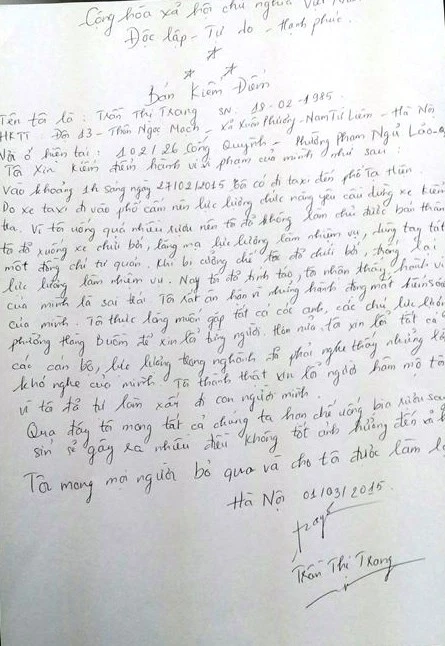 Cộng hòa xã hội chủ nghĩa Việt
Độc lập - Tự do - Hạnh phúc.
Bản Kiểm Điểm
Tên tôi là : Trần Thị Trang SN: 18-02-1985.
HKTT: Đội 13 - Thôn Ngọc Mạch - Xã Xuân Phương - Nam Từ Liêm - Hà Nội
Nơi ở hiện tại : 102/26 Cống Quỳnh - Phường Phạm Ngũ Lão - Q
Tôi xin kiểm điểm hành vi vi phạm của mình như sau :
Vào khoảng 1h sáng ngày 27/02/2015 tôi có đi taxi đến phố Tạ Hiện.
Do xe taxi đi vào phố cấm nên lực lượng chức năng yêu cầu dừng xe kiểm
tra. Vì tôi uống quá nhiều rượu nên tôi đã không làm chủ được bản thân
tôi đã xuống xe chửi bới, lăng mạ lực lượng làm nhiệm vụ, dùng tay tát
một đồng chí tự quản. Khi bị cưỡng chế tôi đã chửi bới, chống lại
lực lượng làm nhiệm vụ. Nay tôi đã tỉnh táo, tôi nhận thấy hành vi
của mình là sai trái. Tôi rất ân hận vì những hành động mất kiểm soát
của mình. Tôi thực lòng muốn gặp tất cả các anh, các chú lực
phường Hàng Buồm để xin lỗi từng người. Hơn nữa, tôi xin lỗi tất cả
các cán bộ, lực lượng trong nghành đã phải nghe thấy những lời
khó nghe của mình. Tôi thành thật xin lỗi người hâm mộ tôi
vì tôi đã tự làm xấu đi con người mình.
Qua đây tôi mong tất cả chúng ta hạn chế uống bia rượu say
sỉn sẽ gây ra nhiều điều không tốt ảnh hưởng đến xã
Tôi mong mọi người bỏ qua và cho tôi được làm lại
Hà Nội 01/03/2015.
Trang
Trần Thị Trang